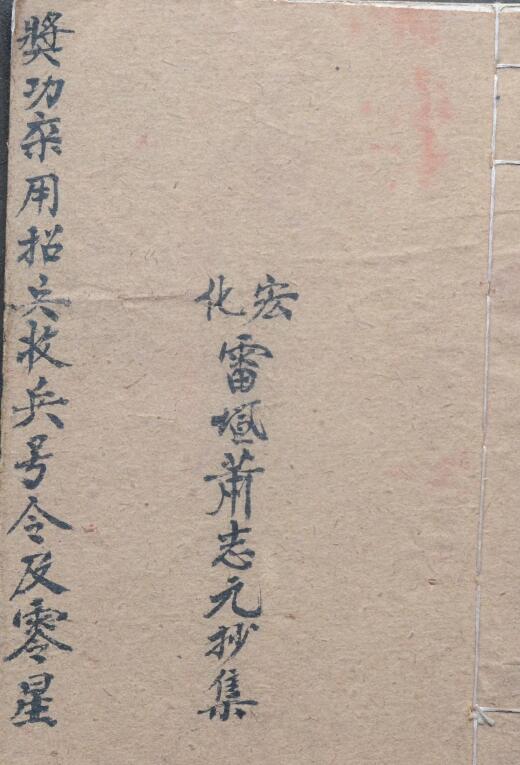 宏化
雷壇萧志元抄集
獎功用招兵收兵号令及零星